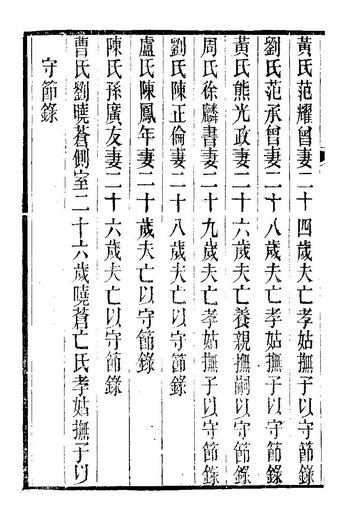 黃氏范耀曾妻二十四歲夫亡孝姑撫子以守節錄
劉氏范承曾妻二十八歲夫亡孝姑撫子以守節錄
黃氏熊光政妻二十六歲夫亡養親撫嗣以守節錄
周氏徐麟書妻二十九歲夫亡孝姑撫子以守節錄
劉氏陳正倫妻二十八歲夫亡以守節錄
盧氏陳鳳年妻二十歲夫亡以守節錄
陳氏孫廣友妻二十六歲夫亡以守節錄
曹氏劉曉蒼側室二十六歲曉蒼亡氏孝姑撫子以
守節錄